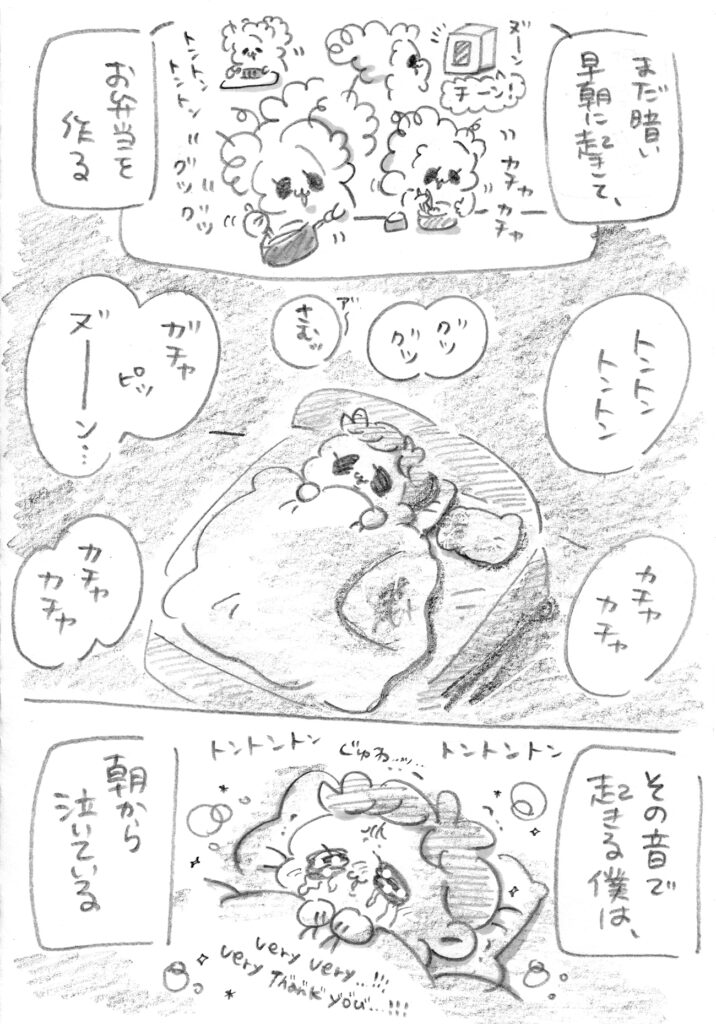 まだ暗い
早朝に起きて、
ヌーン
チーン！
トントン
トントン
カチャ
カチャ
グツ
グツ
お弁当を
作る
トントン
トントン
グツ
グツ
ア〜
さむッ
ガチャ
ピッ
ヌーーン…
カチャ
カチャ
ガチャ
ガチャ
その音で
起きる僕は、
トントントン
じゅわ…ッ…
トントントン
朝から
泣いている
very very..!!!
very Thank you...!!!